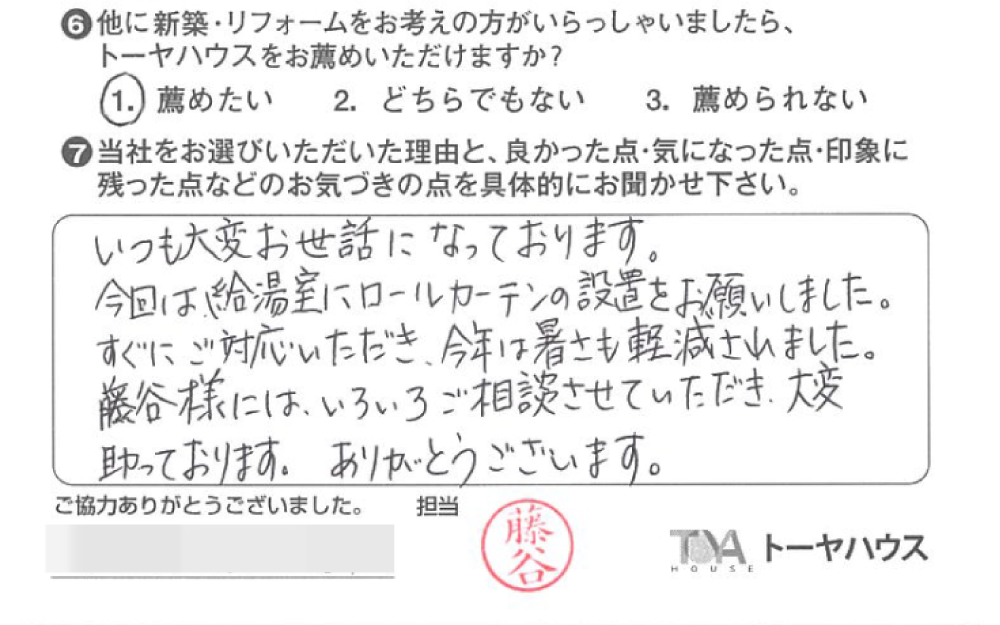 ❻他に新築・リフォームをお考えの方がいらっしゃいましたら、
トーヤハウスをお薦めいただけますか?
1. 薦めたい 2. どちらでもない 3. 薦められない
❼当社をお選びいただいた理由と、良かった点・気になった点・印象に
残った点などのお気づきの点を具体的にお聞かせ下さい。
いつも大変お世話になっております。
今回は、給湯室にロールカーテンの設置をお願いしました。
すぐにご対応いただき、今年は暑さも軽減されました。
藤谷様には、いろいろご相談させていただき、大変
助っております。ありがとうございます。
ご協力ありがとうございました。 担当
藤谷
TOYA HOUSE トーヤハウス